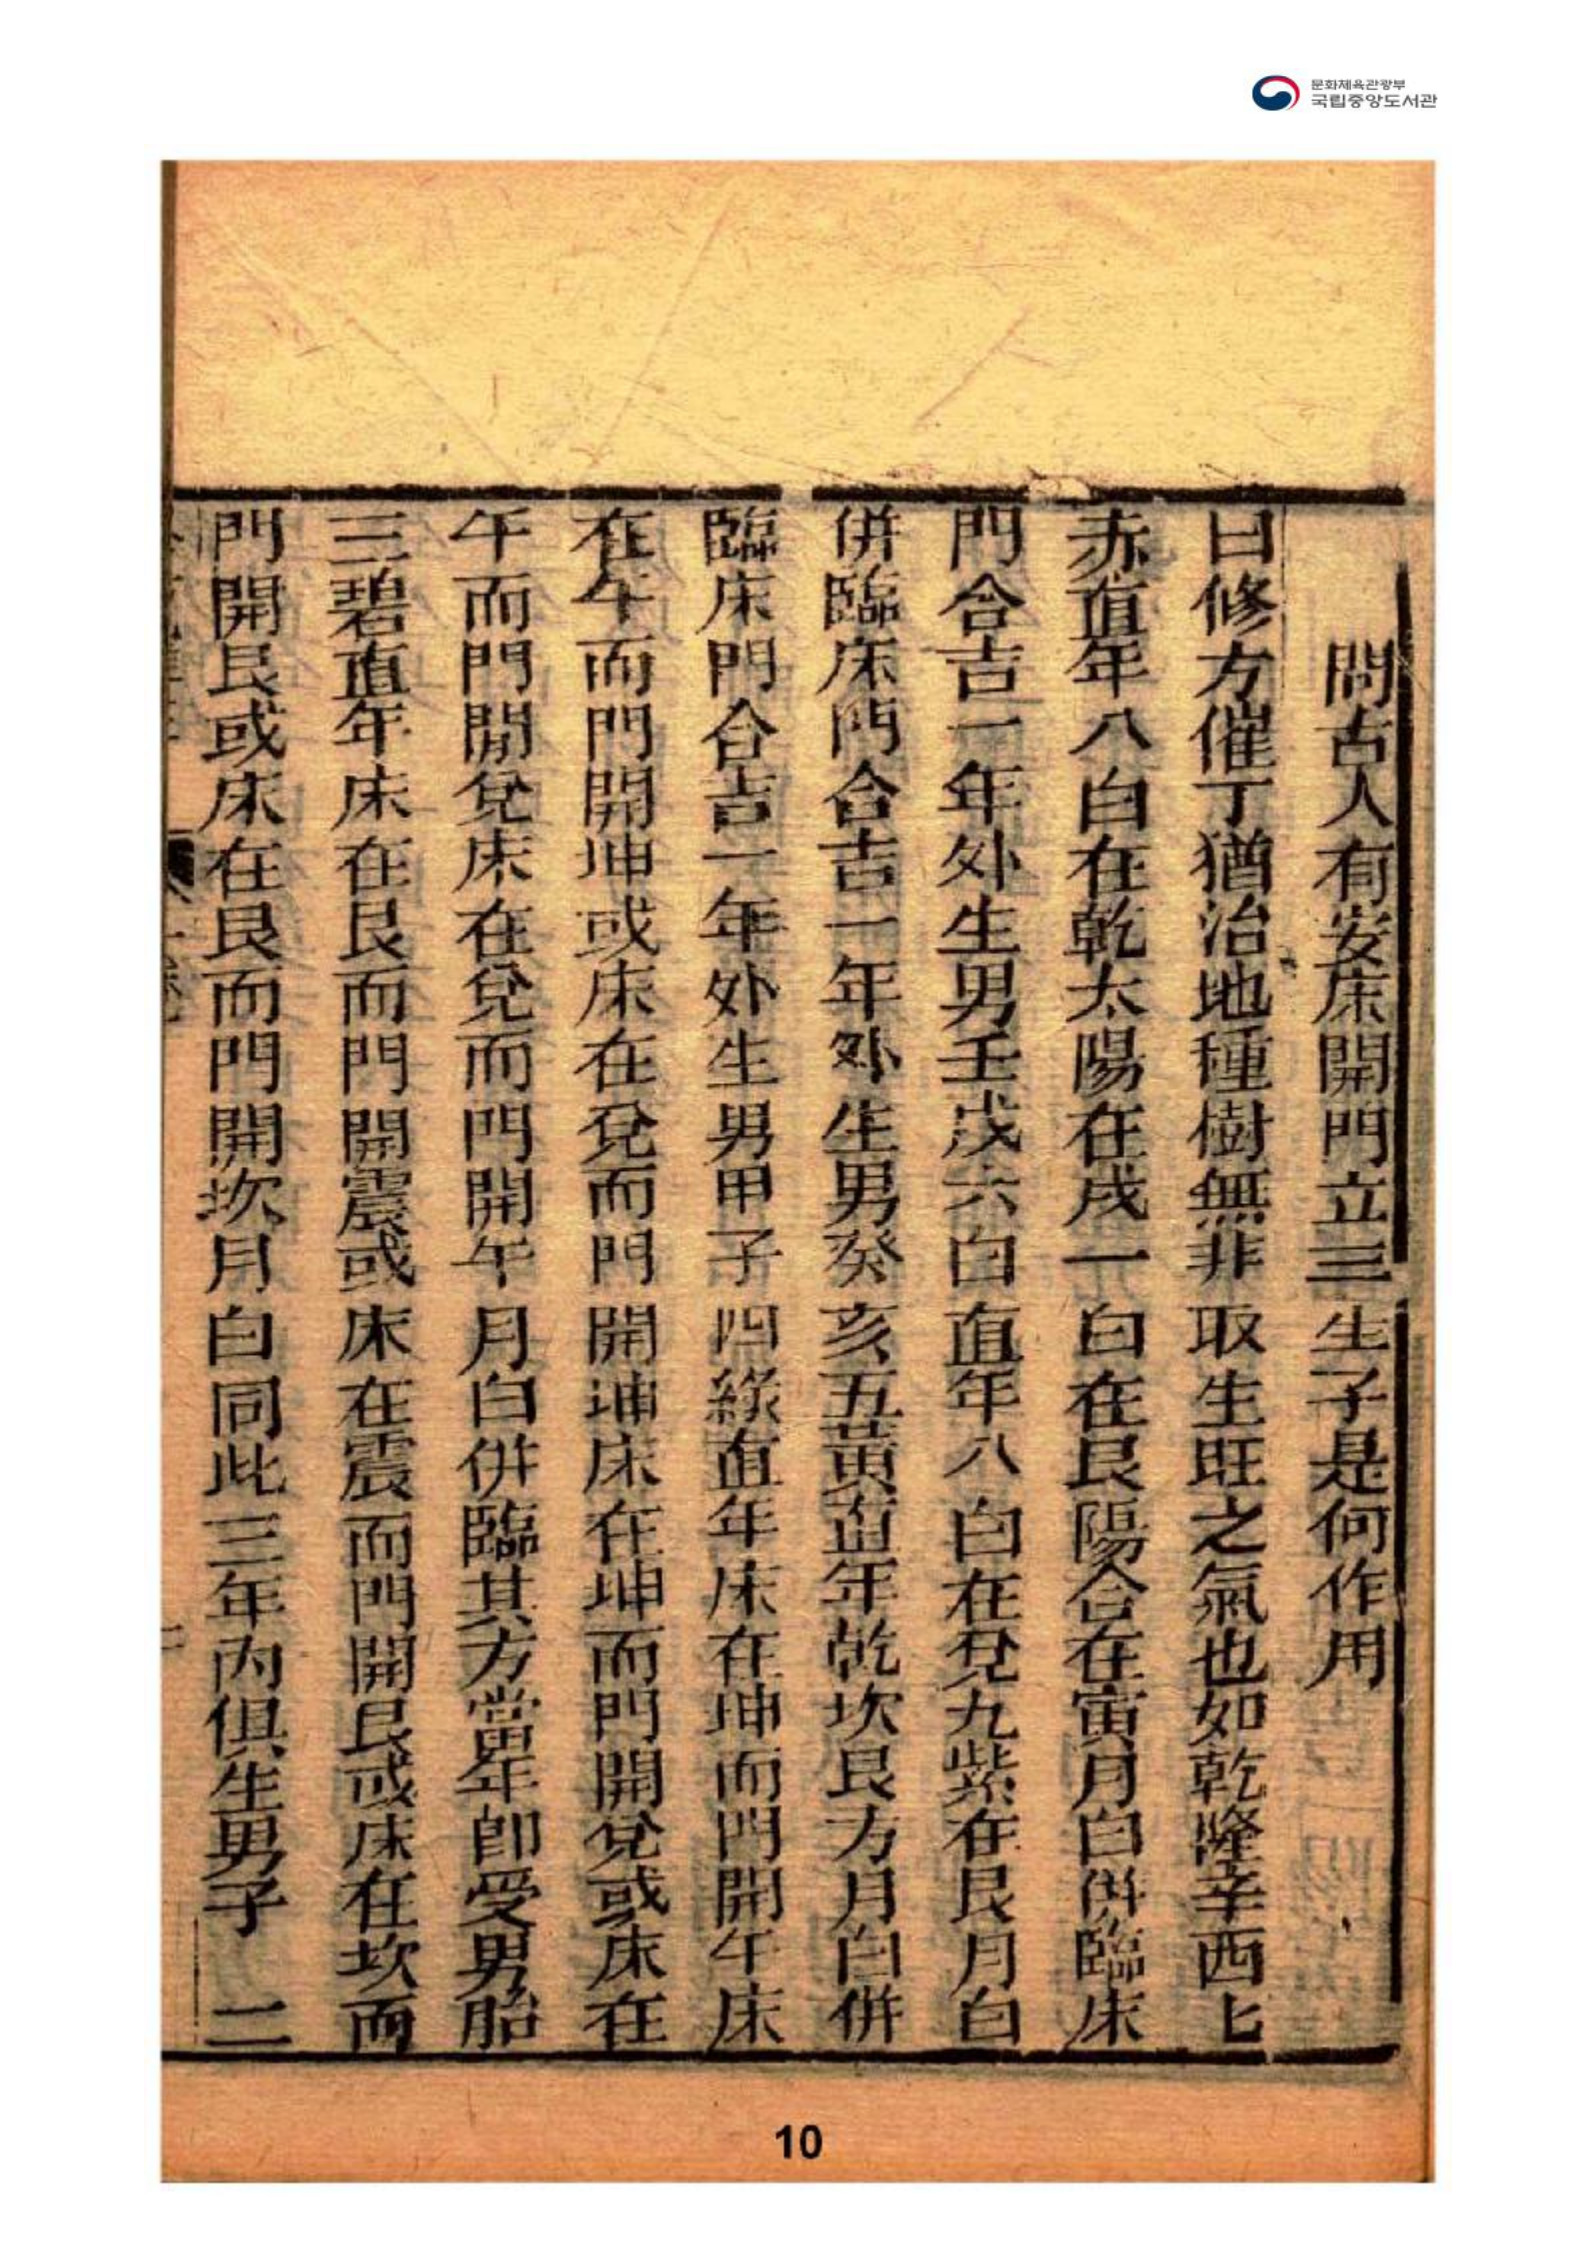 문화체육관광부
국립중앙도서관
問古人有安床開門立三生子是何作用
曰修方催丁猶治地種樹無非取生旺之氣也如乾隆辛酉七
赤値年八白在乾太陽在戌一白在艮陽合在寅月白併臨床
門合吉一年外生男壬戌六白値年八白在兌九紫在艮月白
併臨床門合吉一年外生男癸亥五黃値年乾坎艮方月白併
臨床門合吉一年外生男甲子四綠値年床在坤而門開午床
在午而門開坤或床在兌而門開坤床在坤而門開兌或床在
午而門開兌床在兌而門開午月白併臨其方當年卽受男胎
三碧値年床在艮而門開震或床在震而門開艮或床在坎而
門開艮或床在艮而門開坎月白同此三年內俱生男子 二
10